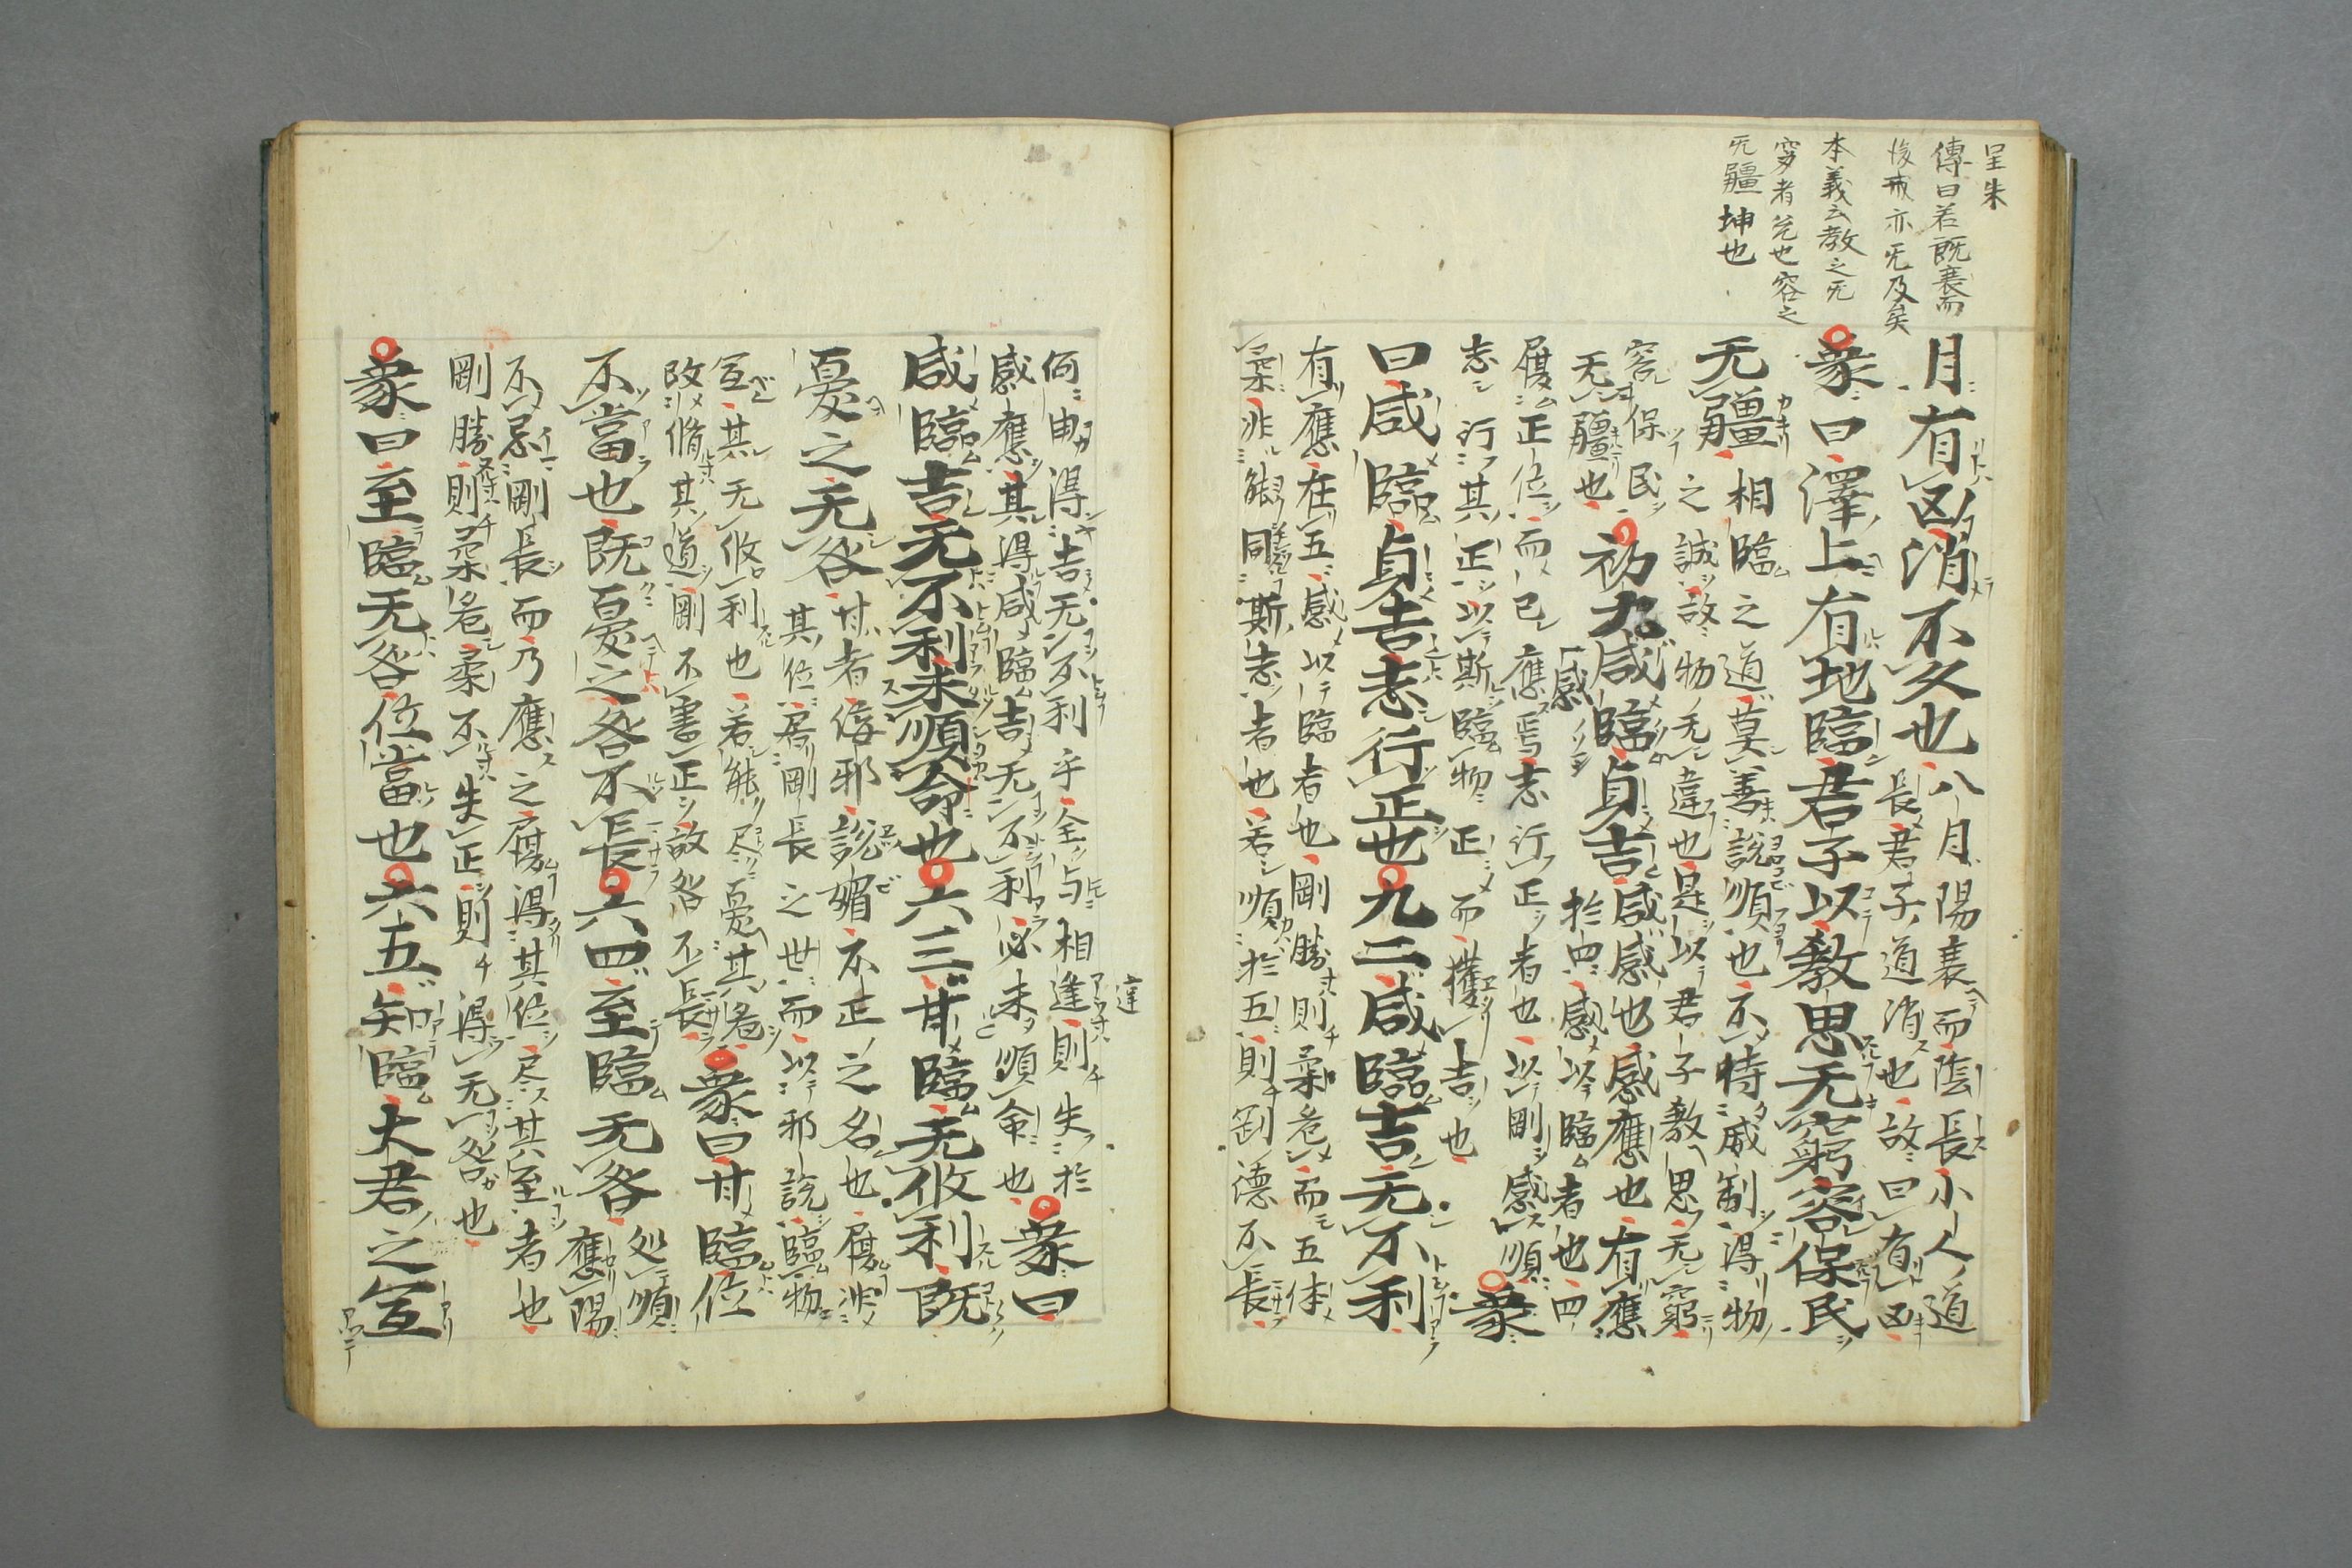 呈朱
傳曰若既衰而
後戒亦无及矣
本義云教之无
窮者兌也容之
无疆坤也
月有凶消不久也八月陽衰而陰長小人道
長君子道消也故曰有凶
象曰澤上有地臨君子以教思无窮容保民
无疆相臨之道莫善說順也不恃威制得物
之誠故物无違也是以君子教思无窮
容保民
无疆也初九咸臨貞吉咸感也感應也有應
感
於四感以臨者也四
履正位而已應焉志行正者也以剛感順
志行其正以斯臨物正而獲吉也象
曰咸臨貞吉志行正也九二咸臨吉无不利
有應在五感以臨者也剛勝則柔危而五体
柔非能同斯志者也若順於五則剛德不長
何由得吉无不利乎全与相違則失於
違
感應其得咸臨吉无不利必未順命也象曰
咸臨吉无不利未順命也六三甘臨无攸利既
憂之无咎甘者佞邪說媚不正之名也履非
其位居剛長之世而以邪說臨物
宜其无攸利也若能尽憂其危
改脩其道剛不害正故咎不長象曰甘臨位
不當也既憂之咎不長六四至臨无咎処順
應陽
不忌剛長而乃應之履得其位尽其至者也
剛勝則柔危柔不失正則得无咎也
象曰至臨无咎位當也六五知臨大君之宜